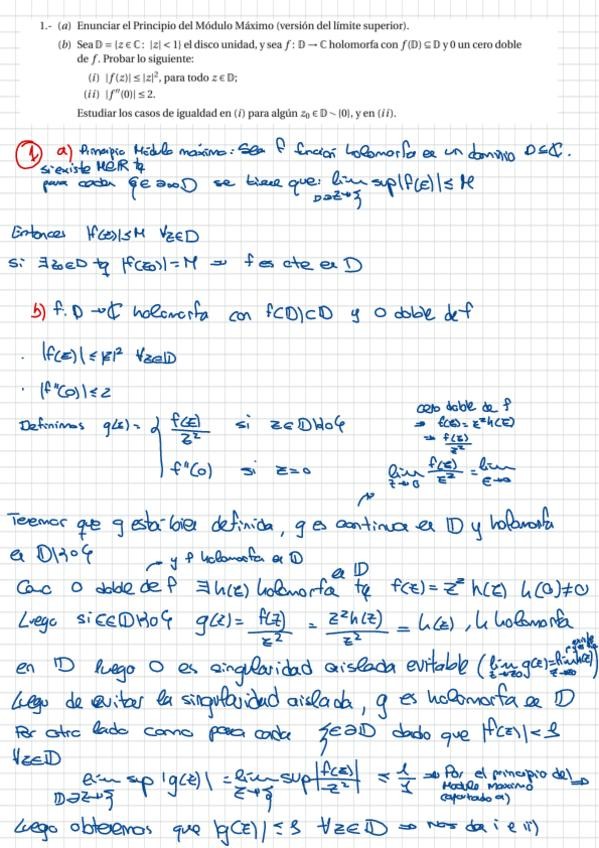 1.- (a) Enunciar el Principio del Módulo Máximo (versión del límite superior).
(b) Sea 𝔻 = {z ∈ ℂ: |z| < 1} el disco unidad, y sea f : 𝔻 → ℂ holomorfa con f(𝔻) ⊆ 𝔻 y 0 un cero doble
de f. Probar lo siguiente:
(i) |f(z)| ≤ |z|², para todo z ∈ 𝔻;
(ii) |f''(0)| ≤ 2.
Estudiar los casos de igualdad en (i) para algún z₀ ∈ 𝔻 \ {0}, y en (ii).
1 a) Principio Módulo máximo: Sea f función holomorfa en un dominio D⊆ℂ.
si existe M∈ℝ tq
para cada ξ∈∂∞D se tiene que: lim sup|f(z)| ≤ M
D∋z→ξ
Entonces |f(z)|≤M ∀z∈D
Si ∃z₀∈D tq |f(z₀)|=M ⇒ f es cte en D
b) f: D→ℂ holomorfa con f(D)⊂D y 0 doble de f
· |f(z)| ≤ |z|² ∀z∈D
· |f''(0)| ≤ 2
Definimos g(z) = { f(z)/z² si z∈D\{0}
f''(0) si z=0
cero doble de f
⇒ f(z)=z²h(z)
⇒ f(z)/z²
lim z→0 f(z)/z² = lim
Tenemos que g está bien definida, g es continua en D y holomorfa
en D\{0}
y f holomorfa en D
Como 0 doble de f ∃h(z) holomorfa en D tq f(z) = z² h(z) h(0)≠0
Luego si z∈D\{0} g(z) = f(z)/z² = z²h(z)/z² = h(z), h holomorfa
en D luego 0 es singularidad aislada evitable (lim z→0 g(z)=lim h(z) existe
Luego de evitar la singularidad aislada, g es holomorfa en D
Por otro lado como para cada ξ∈∂D dado que |f(z)|<1
∀z∈D
lim sup |g(z)| = lim sup |f(z)/z²| ≤ 1/1 ⇒ Por el principio del
D∋z→ξ z→ξ Modulo Maximo
(apartado a)
Luego obtenemos que |g(z)|≤1 ∀z∈D ⇒ Nos da i e ii)